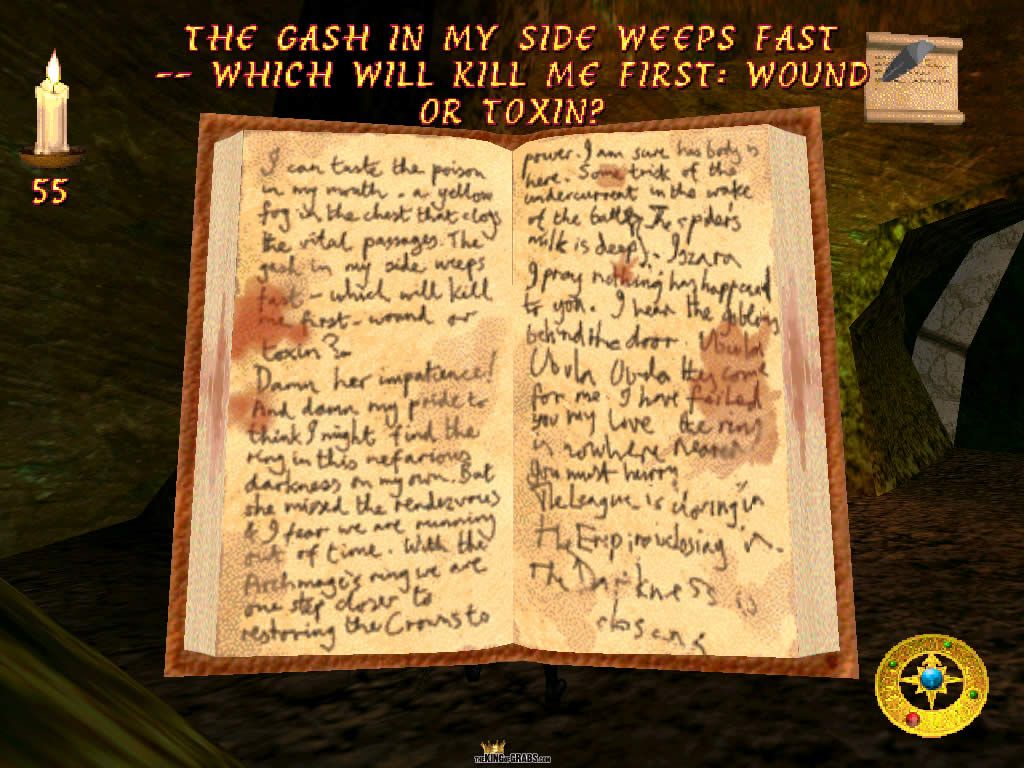 THE GASH IN MY SIDE WEEPS FAST
-- WHICH WILL KILL ME FIRST: WOUND
OR TOXIN?
55
I can taste the poison
in my mouth - a yellow
fog in the chest that clogs
the vital passages. The
gash in my side weeps
fast - which will kill
me first - wound or
toxin?
Damn her impatience!
And damn my pride to
think I might find the
ring in this nefarious
darkness on my own. But
she missed the rendezvous
& I fear we are running
out of time. With the
Archmage's ring we are
one step closer to
restoring the Crowns to
power. I am sure his body is
here. Some trick of the
undercurrent in the wake
of the battle (The spiders
milk is deep) - Iszara
I pray nothing has happened
to you. I hear the goblins
behind the door. Ubula
Ubula Ubula they come
for me. I have failed
you my love the ring
is nowhere near
you must hurry
The League is closing in
The Empire closing in.
The Darkness is
closing
THEKINGOFGRABS.COM